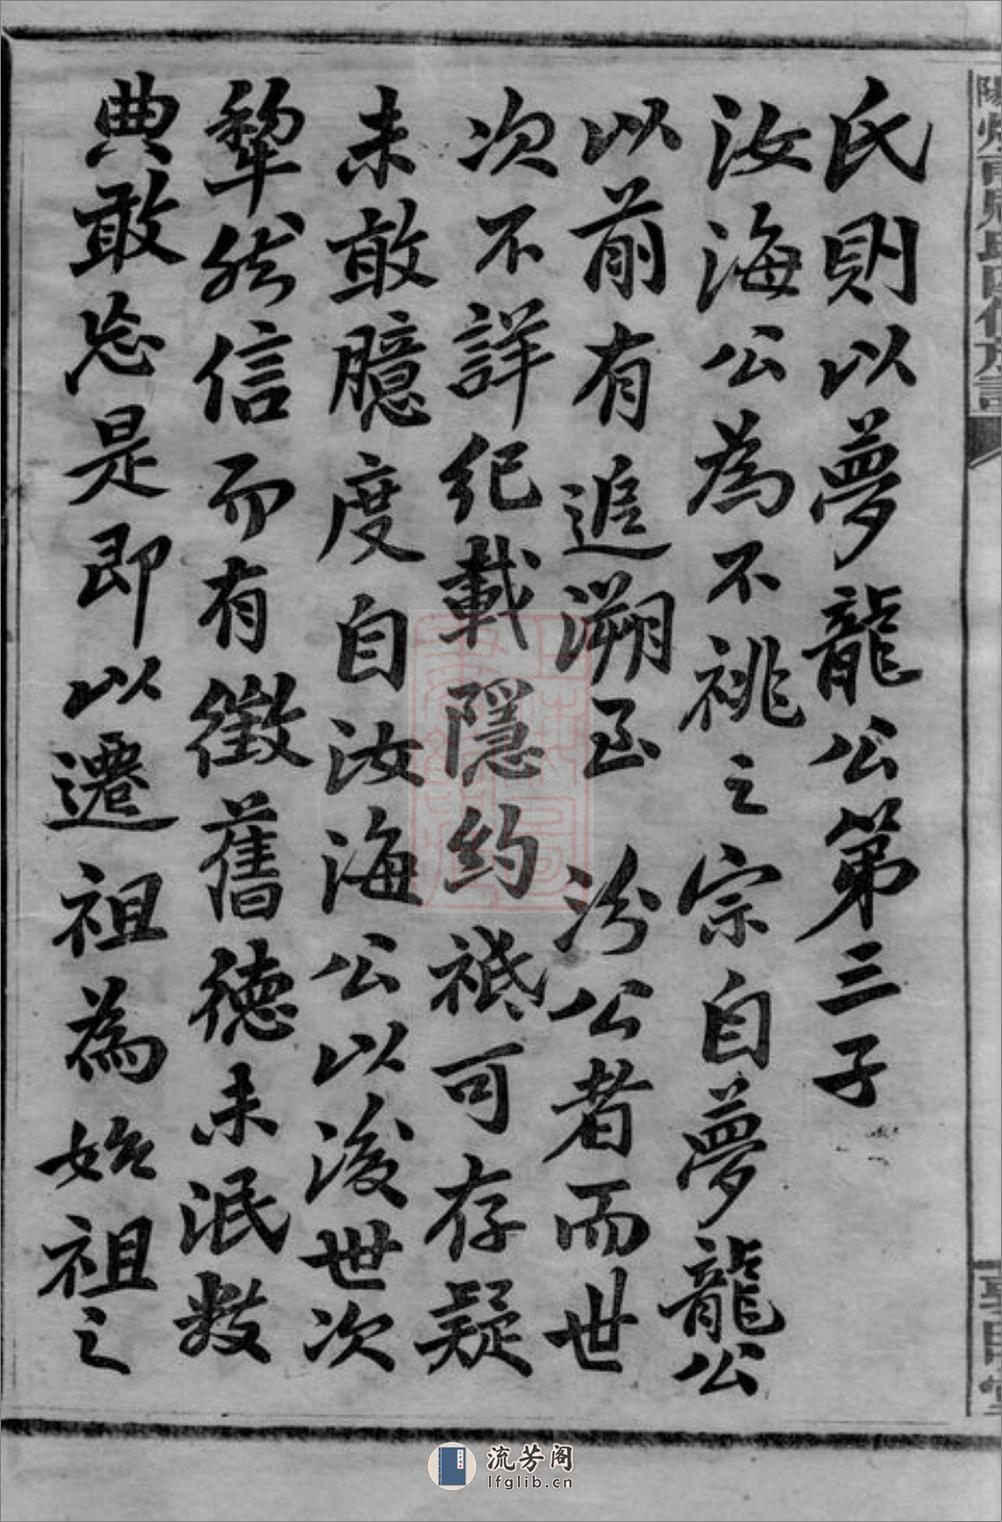 氏則以夢龍公第三子
汝海公為不祧之宗自夢龍公
以前有追溯至 汾公者而世
次不詳紀載隱約祗可存疑
未敢臆度自汝海公以後世次
犂然信而有徵舊德未泯數
典敢忘是即以遷祖為始祖之
流芳阁
lfglib.cn